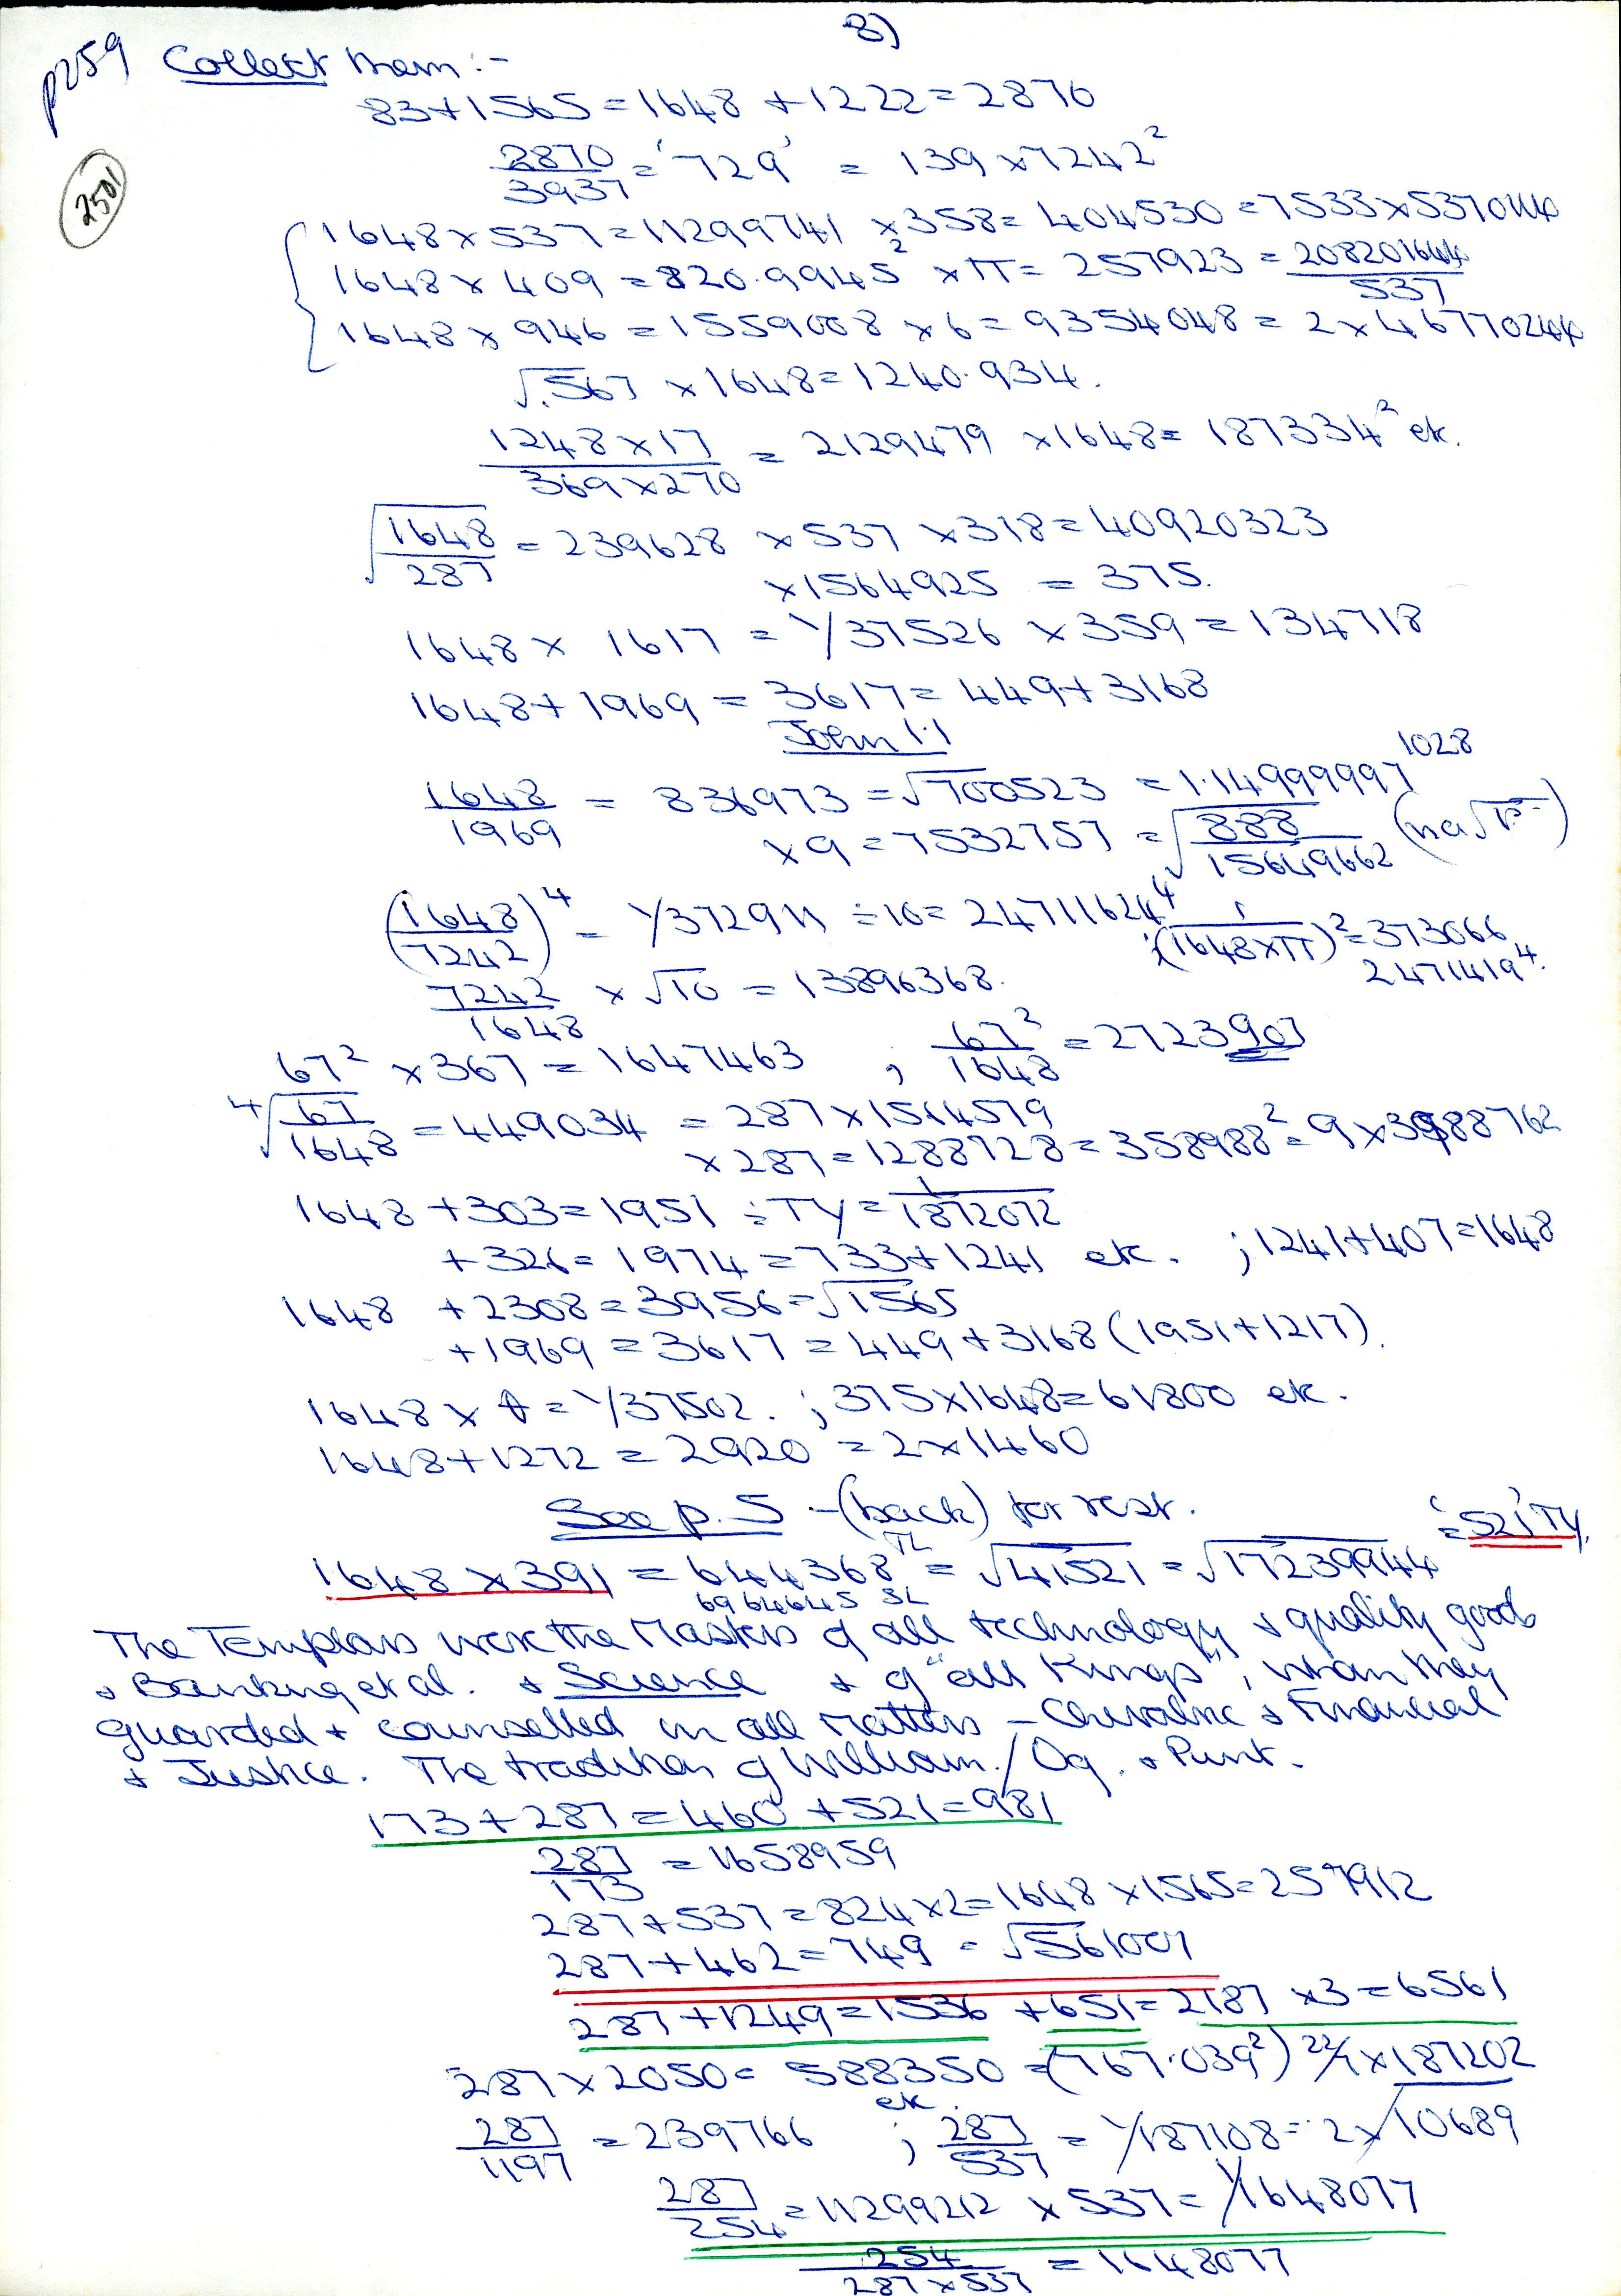 8)
p259 Collect them:-
83+1565=1648 +1222=2870
2501
2870/3937 = '729' = 139 x 7242²
1648x537=11299741² x358= 404530 =7533x5370114
1648 x 409 = 820.9945² xπ= 257923 = 208201644/537
1648 x 946 = 1559008 x 6= 9354048 = 2 x 46770244
√.567 x1648=1240.934.
1248x17/369x270 = 2129479 x1648= 187334² etc.
√1648/287 = 239628 x537 x318=40920323
x1564925 = 375.
1648x 1617 = 1/37526 x359=134718
1648+1969 = 3617= 449+3168
John 1.1
1648/1969 = 836973 =√700523 = 1.14999997 1028
x9=7532757 =√888/15649662
(1648/7242)⁴ = 1/372911 ÷10= 24711624⁴ ; (1/1648xπ)²=373066
2471419⁴.
7242/1648 x √10 = 13896368.
67² x367=1647463 ; 67²/1648 =2723907
⁴√67/1648 =449034 = 287x1564579
x287=1288728=358988²=9x3988762
1648 +303=1951 ÷TY=1/1872072
+326= 1974=733+1241 etc. ;1241+407=1648
1648 +2308=3956=√1565
+1969=3617=449+3168(1951+1217).
1648 x θ=1/37502. ;375x1648=61800 etc.
1648+1272=2920 =2x1460
See p.5 -(back) for rest.
='521'TY.
1648x391= 644368 TL =√41521=√17239944
6964645 SL
The Templars were the Masters of all technology & quality goods
& Banking et al. & Science & of "all Kings", whom they
guarded + counselled in all matters - Chivalric & Financial
& Justice. The tradition of William./Og. & Punt.
173+287=460 +521=981
287/173 =1658959
287+537=824x2=1648x1565=257912
287+462=749 =√561001
287+1249=1536 +651=2187 x3=6561
287x2050= 588350 =(767.039²) 22/7x187202
etc.
287/1197 =239766 ; 287/537 = 1/187108= 2x√10689
287/254 =11299212 x537= 1/1648077
254/287x537 =1648077